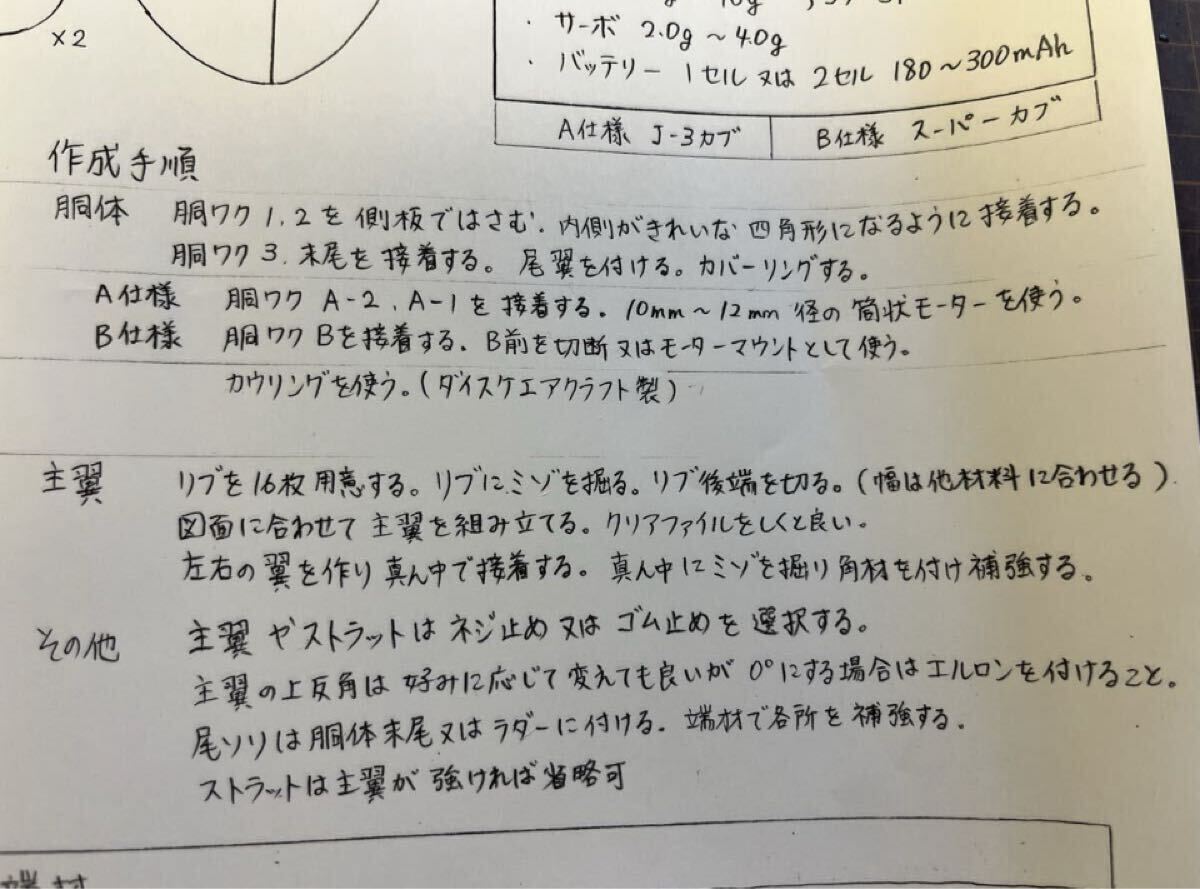 ×2
・サーボ 2.0g～4.0g
・バッテリー 1セル又は2セル 180～300mAh
A仕様 J-3カブ
B仕様 スーパーカブ
作成手順
胴体 胴ワク1.2を側板ではさむ、内側がきれいな四角形になるように接着する。
胴ワク3.末尾を接着する。尾翼を付ける。カバーリングする。
A仕様 胴ワクA-2、A-1を接着する。10mm～12mm径の筒状モーターを使う。
B仕様 胴ワクBを接着する、B前を切断又はモーターマウントとして使う。
カウリングを使う。(ダイスケエアクラフト製)
主翼 リブを16枚用意する。リブにミゾを掘る。リブ後端を切る。(幅は他材料に合わせる)
図面に合わせて主翼を組み立てる。クリアファイルをしくと良い。
左右の翼を作り真ん中で接着する。真ん中にミゾを掘り角材を付け補強する。
その他 主翼やストラットはネジ止め又はゴム止めを選択する。
主翼の上反角は好みに応じて変えても良いが0°にする場合はエルロンを付けること。
尾ソリは胴体末尾又はラダーに付ける、端材で各所を補強する、
ストラットは主翼が強ければ省略可